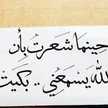 حينما شعرت بأن
الله يسمعني .. بكيت